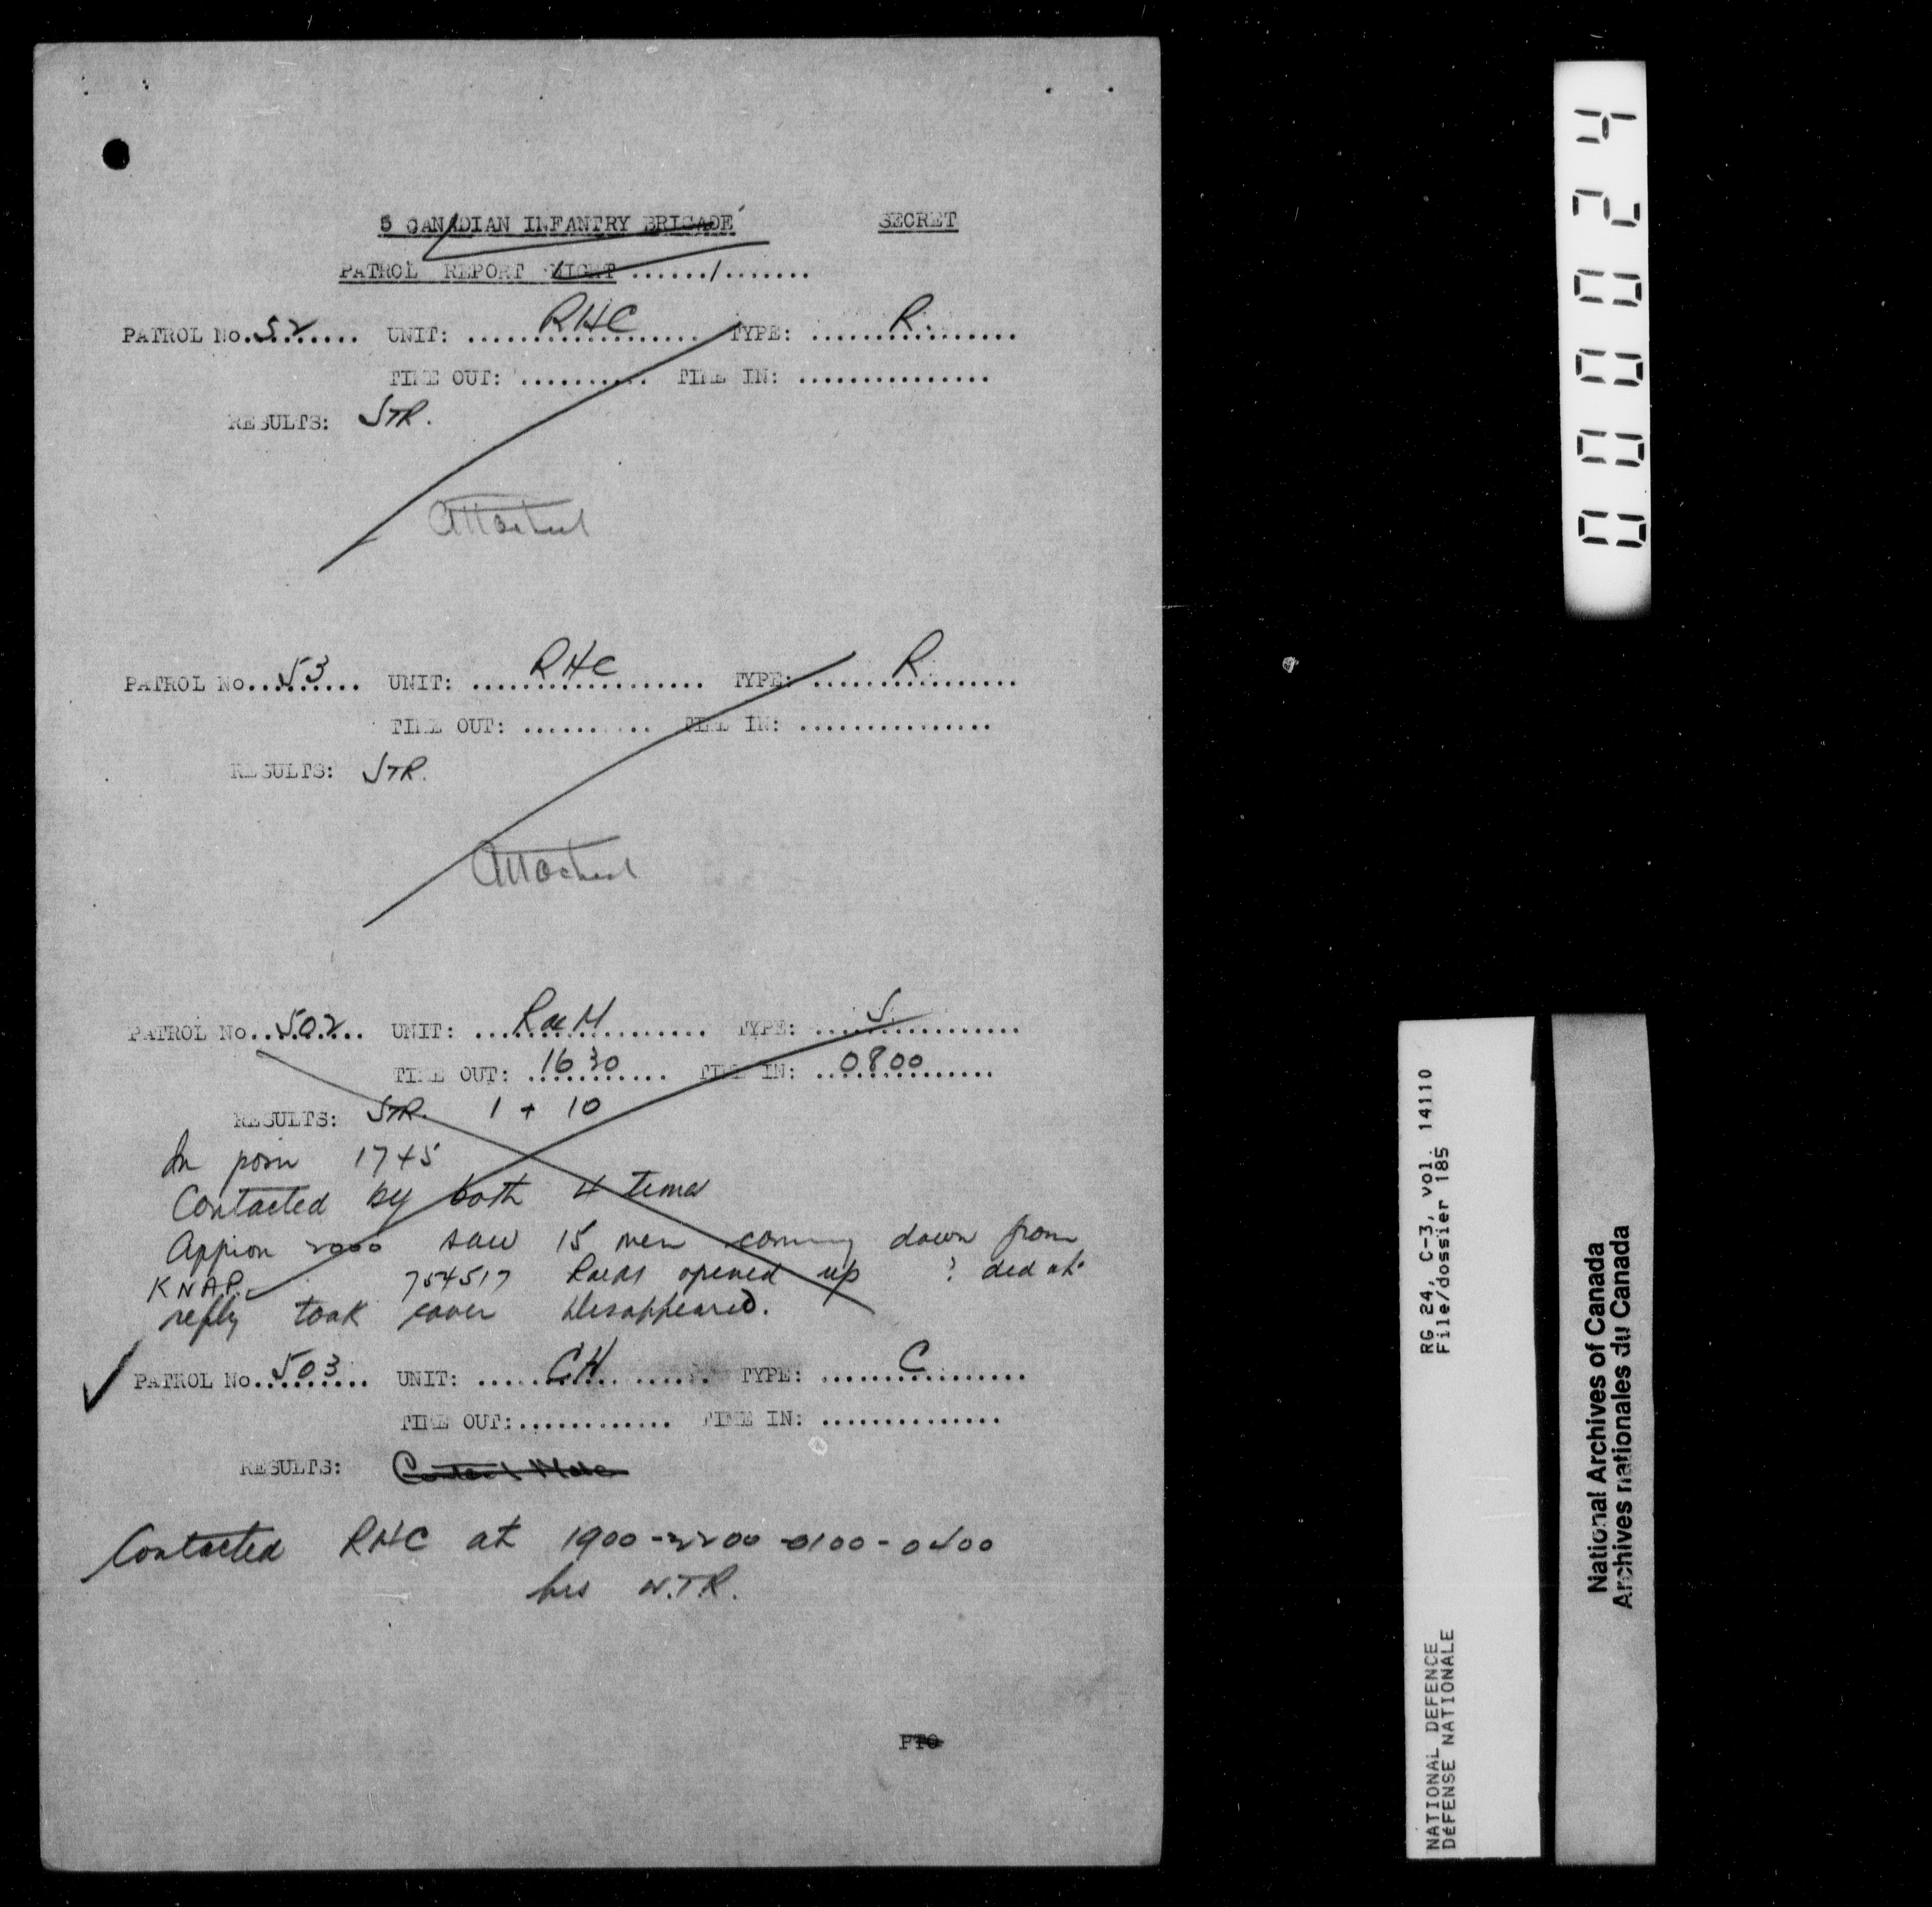 5 CANADIAN INFANTRY BRIGADE SECRET
PATROL REPORT NIGHT ....../.......
PATROL No. 52 UNIT: RHC TYPE: R.
TIME OUT: .......... TIME IN: ...............
RESULTS: STR.
Attached
PATROL No. 53 UNIT: RHC TYPE: R
TIME OUT: .......... TIME IN: ...............
RESULTS: STR.
Attached
PATROL No. 502 UNIT: R de M TYPE: S
TIME OUT: 1630 TIME IN: 0800
RESULTS: STR. 1 + 10
In posn 1745
Contacted by both 4 times
saw 15 men coming down from
KNAP. 754517 opened up ? did not
reply took cover disappeared.
PATROL No. 503 UNIT: CH TYPE: C
TIME OUT: ............ TIME IN: ..............
RESULTS: Contact
Contacted RHC at 1900 - 2200 - 0100 - 0400
hrs N.T.R.
PTO
000024
RG 24, C-3, vol. 14110
File/dossier 185
NATIONAL DEFENCE
DÉFENSE NATIONALE
National Archives of Canada
Archives nationales du Canada